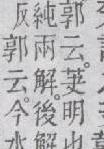 郭云。芵明也
純兩解。後解
反郭云。今水